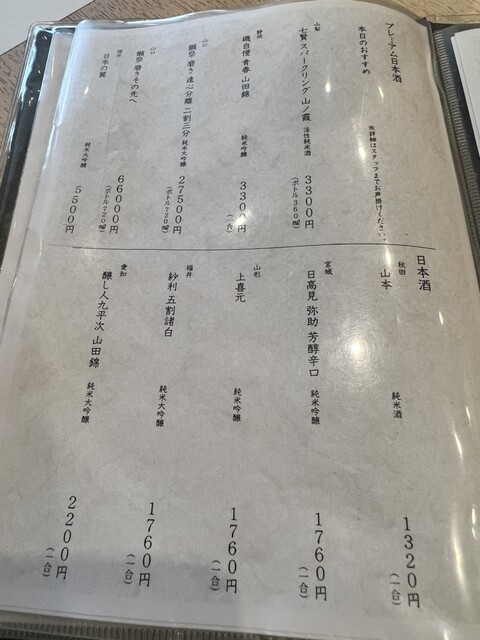 プレミアム日本酒
本日のおすすめ
※詳細はスタッフまでお声掛けください。
山梨
七賢 スパークリング 山ノ霞 活性純米酒
3300円
(ボトル360㎖)
静岡
磯自慢 青春 山田錦 純米吟醸
3300円
(一合)
山口
獺祭 磨き 遠心分離 二割三分 純米大吟醸
27500円
(ボトル720㎖)
山口
獺祭 磨きその先へ
66000円
(ボトル720㎖)
福井
日本の翼 純米大吟醸
5500円
日本酒
秋田
山本 純米酒
1320円
(一合)
宮城
日高見 弥助 芳醇辛口 純米吟醸
1760円
(一合)
山形
上喜元 純米吟醸
1760円
(一合)
福井
紗利 五割諸白 純米大吟醸
1760円
(一合)
愛知
醸し人九平次 山田錦 純米大吟醸
2200円
(一合)